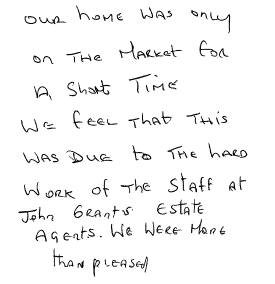 our home was only
on The Market for
A Short Time
We feel That This
was Due to The hard
Work of The Staff at
John Grant's Estate
Agents. We Were More
than pleased